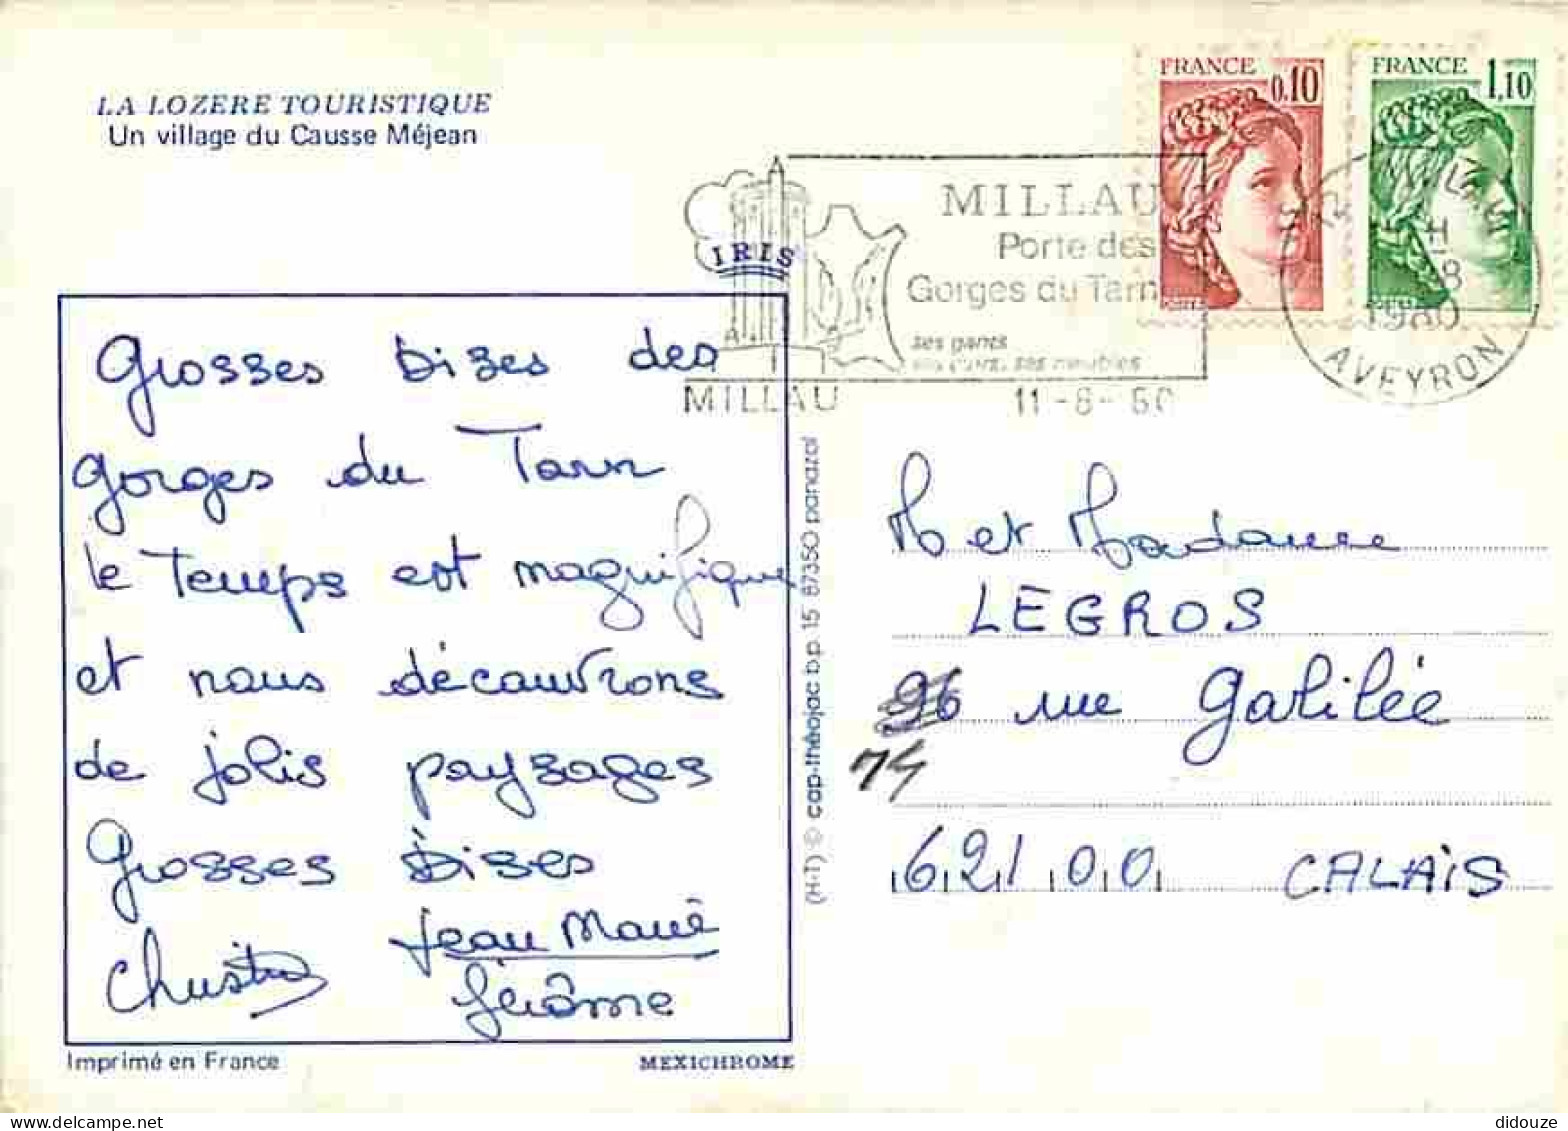 LA LOZERE TOURISTIQUE
Un village du Causse Méjean
FRANCE 0,10
FRANCE 1,10
MILLAU
Porte des
Gorges du Tarn
ses gants
ses cuirs, ses meubles
MILLAU
11-8-80
1980
AVEYRON
IRIS
Grosses bises des
Gorges du Tarn
le Temps est magnifique
et nous découvrons
de jolis paysages
Grosses bises
Jean Marie
Jérôme
Imprimé en France
MEXICHROME
(H-T) © cap-théojac b.p. 15 87350 panazol
M et Madame
LEGROS
96 rue Galilée
74
62100 CALAIS
didouze